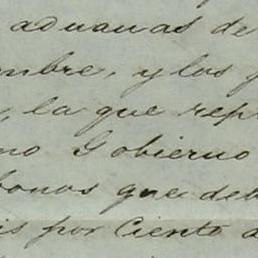 aduanas de
mbre, y los
, la que rep
mo Gobierno
bonos que deb
is por Ciento d